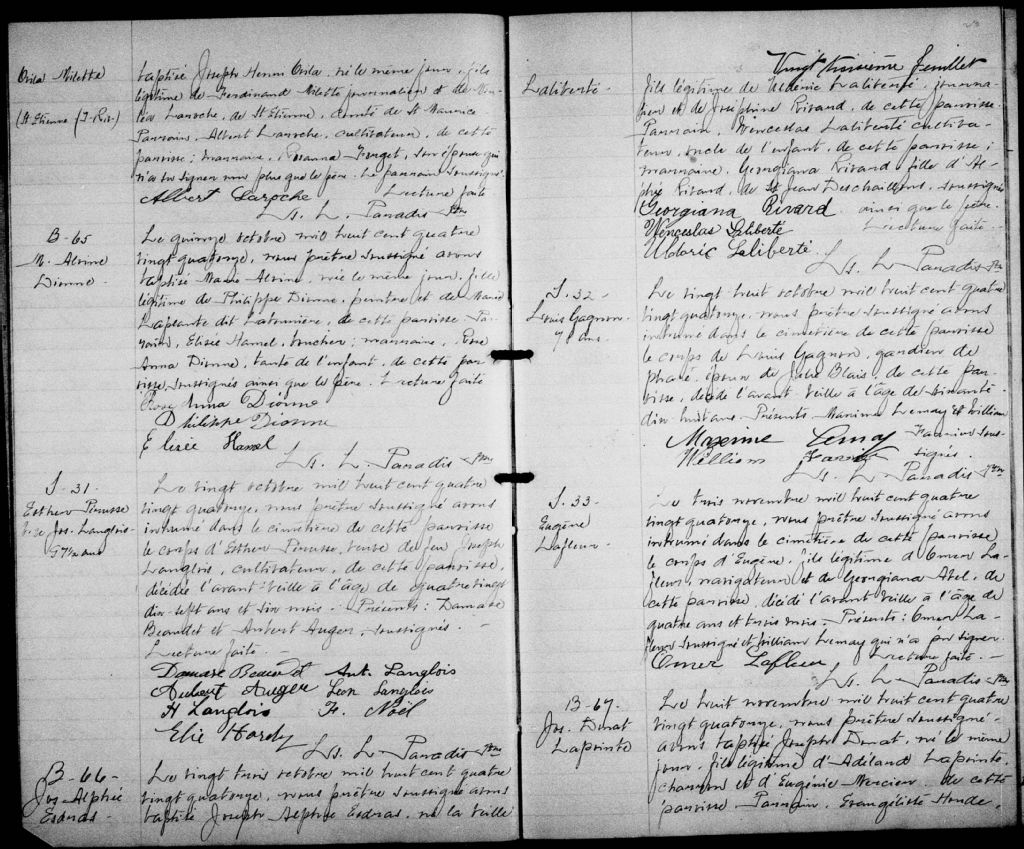 Orila Milette
(St Etienne (T-Riv.)
baptisé Joseph Henri Orila, né le même jour, fils
légitime de Ferdinand Milette journalier et de
Laroche, de St Etienne, comté de St Maurice
Parrain, Albert Laroche, cultivateur, de cette
paroisse; marraine, Rosanna Forget, son épouse qui
n'a su signer non plus que le père. Le parrain soussigné.
Lecture faite
Albert Laroche
Ls. L. Paradis Ptre
B-65
M. Alvine
Dionne
Le quinze octobre mil huit cent quatre
vingt quatorze, nous prêtre soussigné avons
baptisé Marie Alvine, née le même jour, fille
légitime de Philippe Dionne, peintre et de Marie
Laplante dit Latournière, de cette paroisse. Par-
rain, Elisée Hamel, boucher; marraine, Rose
Anna Dionne, tante de l'enfant, de cette pa-
roisse, soussignés ainsi que le père. Lecture faite
Rose Anna Dionne
Philippe Dionne
Elisée Hamel
Ls. L. Paradis Ptre
S-31-
Esther Perusse
Jos. Langlois
97½ ans
Le vingt octobre mil huit cent quatre
vingt quatorze, nous prêtre soussigné avons
inhumé dans le cimetière de cette paroisse
le corps d'Esther Perusse, veuve de feu Joseph
Langlois, cultivateur, de cette paroisse,
décédée l'avant-veille à l'âge de quatre vingt
dix-sept ans et six mois. Présents: Damase
Beaudet et Aubert Auger, soussignés.
Lecture faite.
Damase Beaudet Ant. Langlois
Aubert Auger Léon Langlois
H Langlois F. Noël
Elie Hardy
Ls. L. Paradis Ptre
B-66-
Jos Alphé
Esdras
Le vingt trois octobre mil huit cent quatre
vingt quatorze, nous prêtre soussigné avons
baptisé Joseph Esdras, né la veille
23
Vingt troisième feuillet
Laliberté
fils légitime de Uldéric Laliberté, journa-
lier et de Joséphine Rivard, de cette paroisse.
Parrain, Wenceslas Laliberté cultiva-
teur, oncle de l'enfant, de cette paroisse;
marraine, Georgiana Rivard fille d'Al-
phé Rivard, de St Jean Deschaillons, soussignés
Georgiana Rivard ainsi que le père.
Wenceslas Laliberté Lecture faite.
Uldoric Laliberté
Ls. L. Paradis Ptre
S. 32-
Louis Gagnon
78 ans.
Le vingt huit octobre mil huit cent quatre
vingt quatorze, nous prêtre soussigné avons
inhumé dans le cimetière de cette paroisse
le corps de Louis Gagnon, gardien de
phare, époux de Julie Blais, de cette pa-
roisse, décédé l'avant veille à l'âge de soixante
dix huit ans. Présents Maxime Lemay et William
sous-
Maxime Lemay signés.
William
Ls. L. Paradis Ptre
S. 33-
Eugène
Lafleur
Le trois novembre mil huit cent quatre
vingt quatorze, nous prêtre soussigné avons
inhumé dans le cimetière de cette paroisse
le corps d'Eugène, fils légitime d'Omer La-
fleur, navigateur et de Georgiana Abel, de
cette paroisse, décédé l'avant veille à l'âge de
quatre ans et trois mois. Présents: Omer La-
fleur soussigné et William Lemay qui n'a pu signer.
Omer Lafleur Lecture faite.
Ls. L. Paradis Ptre
B-67-
Jos. Donat
Lapointe
Le huit novembre mil huit cent quatre
vingt quatorze, nous prêtre soussigné
avons baptisé Joseph Donat, né le même
jour, fils légitime d'Adélard Lapointe,
charron et d'Eugénie Mercier, de cette
paroisse Parrain, Evangéliste Houde,